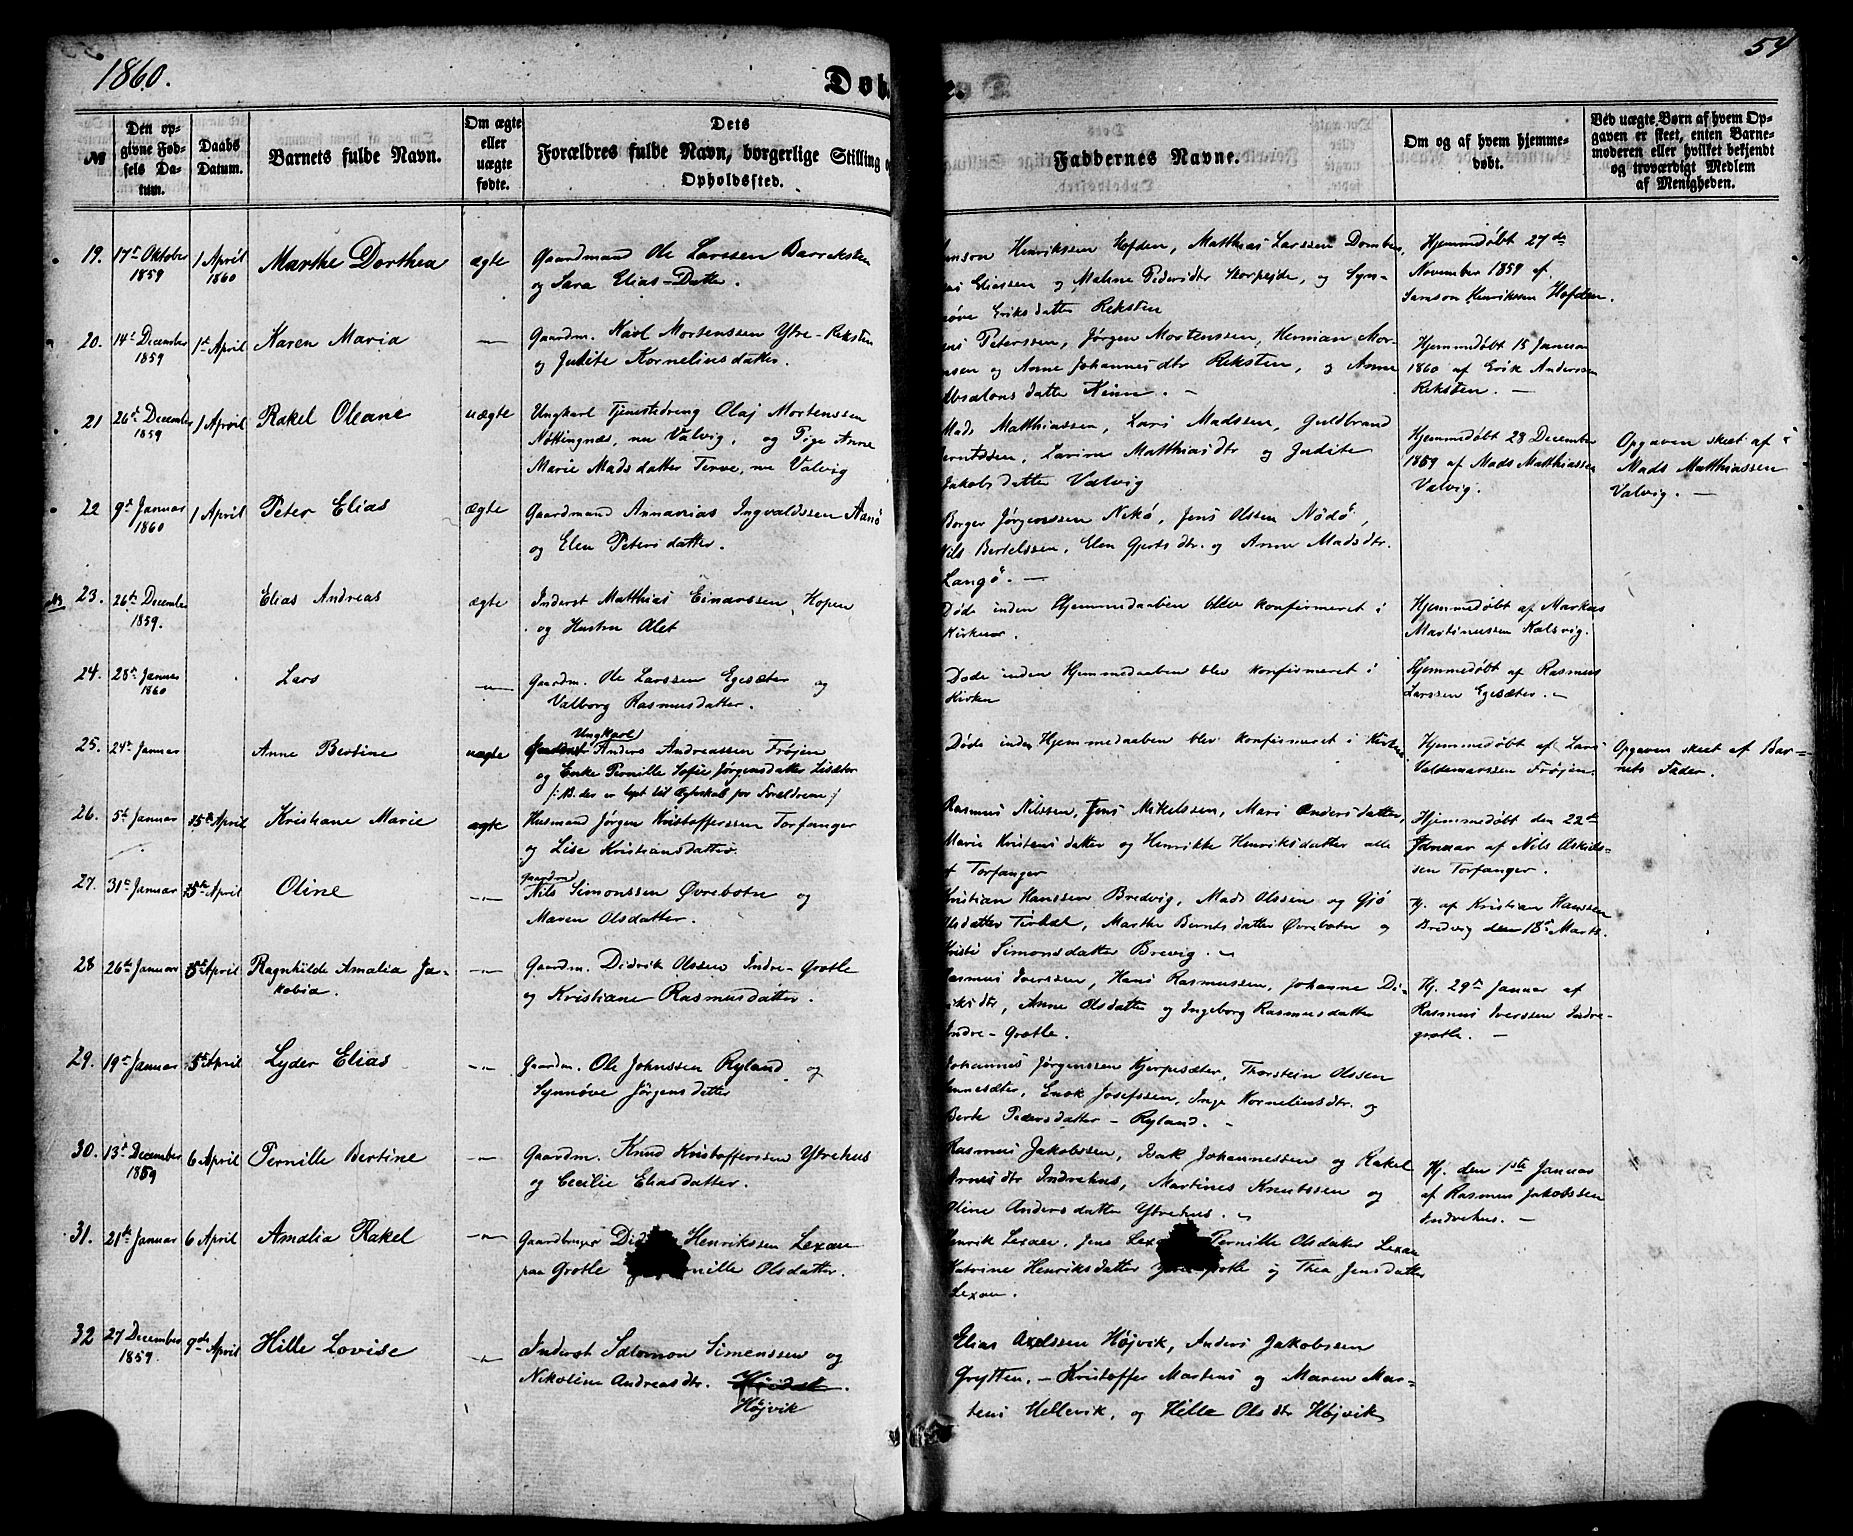 1860.
Døb
54
№
Den opgivne Fødsels Datum.
Daabs Datum.
Barnets fulde Navn.
Om ægte eller uægte fødte.
Dets Forældres fulde Navn, borgerlige Stilling o
Opholdssted.
Faddernes Navne.
Om og af hvem hjemmedøbt.
Ved uægte Børn af hvem Opgaven er skeet, enten Barnemoderen eller hvilket bekjendt og troværdigt Medlem af Menigheden.
19. 17de Oktober 1859 1 April 1860 Marthe Dorthea ægte
Gaardmand Ole Larssen Barreksten
og Sara Elias-Datter.
mson Henrikssen Hofden, Matthias Larssen Domben,
ias Eliassen og Malene Pedersdtr Skorpejde, og Syn-
nøve Eriksdatter Reksten
Hjemmedøbt 27de
November 1859 af
Samson Henrikssen Hofden.
20. 14de December 1859 1st April Karen Maria —
Gaardm. Karl Mortenssen Ytre-Reksten
og Judite Korneliusdatter.
Peterssen, Jørgen Mortenssen, Herman Mor-
nsen og Anne Johannesdtr Reksten, og Anne
Absalonsdatter Kinn. —
Hjemmedøbt 15 Januar
1860 af Erik Anderssen
Reksten. —
21 26de December 1859 1 April Rakel Oleane uægte
Ungkarl Tjenestedreng Olaj Mortenssen
Nøttingnæs, nu Valvig, og Pige Anne
Marie Madsdatter Terve, nu Valvig
Mads Matthiassen, Lars Madssen, Guldbrand
erntssen, Larine Matthiasdtr og Judite
Jakobsdatter Valvig
Hjemmedøbt 28 December
1859 af Mads Matthiassen
Valvig.
Opgaven skeet af
Mads Matthiassen
Valvig. —
22 9de Januar 1860 1 April Peter Elias ægte
Gaardmand Annanias Ingvaldssen Aanø
og Elen Petersdatter.
Borger Jørgenssen Nekø, Jens Olssen Nødø,
Nils Bertelssen, Elen Gjertsdtr. og Anne Madsdtr.
Langø. —
23. 26de December 1859. Elias Andreas ægte
Inderst Matthias Einarssen Hopen
og Hustru Alet
Døde inden Hjemmedaaben blev konfirmeret i
Kirken.
Hjemmedøbt af Markus
Martinussen Kalsvig.
24. 28de Januar 1860 Lars —
Gaardm. Ole Larssen Egesæter og
Valborg Rasmusdatter.
Døde inden Hjemmedaaben blev konfirmeret i
Kirken
Hjemmedøbt af Rasmus
Larssen Egesæter. —
25. 24de Januar Anne Bertine uægte
Ungkarl
Anders Andreassen Frøjen
og Enke Pernille Sofie Jørgensdatter Lisæter
/: NB. der er lyst til Ægteskab for Forældrene :/
Døde inden Hjemmedaaben blev konfirmeret i Kirken
Hjemmedøbt af Lars
Valdemarssen Frøjen.
Opgaven skeet af Bar-
nets Fader.
26. 5te Januar 5te April Kristiane Marie ægte
Husmand Jørgen Kristofferssen Torfanger
og Lise Kristiansdatter.
Rasmus Nilssen, Jens Mikelssen, Mari Andersdatter,
Marie Kristensdatter og Henrikke Henriksdatter alle
af Torfanger
Hjemmedøbt den 22de
Januar af Nils Askids-
sen Torfanger.
27. 31te Januar 5te April Oline —
Gaardm
Nils Simonssen Øvrebotn og
Maren Olsdatter.
Kristian Hanssen Bredvig, Mads Olssen og Gjø
Olsdatter Tirbæt, Marthe Berntsdatter Øvrebotn og
Kristi Simonsdatter Brevig. —
Hj. af Kristian Hanssen
Bredvig den 18de Marts.
28 26de Januar 5te April Ragnhilde Amalia Ja-
kobia. —
Gaardm. Didrik Olssen Indre-Grotle
og Kristiane Rasmusdatter.
Rasmus Iverssen, Hans Rasmussen, Johanne Di-
riksdtr, Anne Olsdatter og Ingeborg Rasmusdatter
Indre-Grotle.
Hj. 29de Januar af
Rasmus Iverssen Indre-
grotle. —
29. 19de Januar 5te April Lyder Elias —
Gaardm. Ole Johnssen Ryland og
Synnøve Jörgensdatter
Johannes Jørgenssen Kjerpesæter, Thorstein Olssen
nnesæter, Enok Josefssen, Inge Korneliusdtr. og
Berte Pedersdatter – Ryland. —
30. 13de December 1859 6 April Pernille Bertine —
Gaardm. Knud Kristofferssen Ytrehus
og Cecilie Eliasdatter.
Rasmus Jakobssen, Isak Johannessen og Rakel
Arnesdtr Indrehus, Martines Knutssen og
Oline Andersdatter Ytrehus. —
Hj. den 1ste Januar
af Rasmus Jakobssen
Indrehus. —
31. 21de Januar 6 April Amalia Rakel —
Gaardbruger Did Henrikssen Lexau
paa Grotle nille Olsdatter.
enrik Lexau, Jens Lex Pernille Olsdatter Lexau
Katrine Henriksdatter otle og Thea Jensdatter
Lexau.
32 27 December 1859. 9de April Hille Lovise —
Inderst Salomon Simenssen og
Nikoline Andreasdtr.
Højvik
Elias Axelssen Højvik, Anders Jakobssen
Grytten. – Kristoffer Martens og Maren Mar-
tens Hellevik, og Hille Olsdtr Højvik